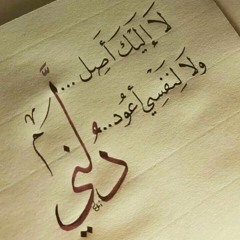 لَا إِلَيْكَ أَصِل ...
وَلَا لِنَفْسِي أَعُود ...
دُلَّنِي